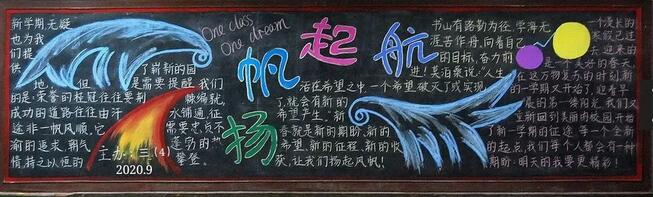 新学期无疑
也为我
们提
供
了崭新的园
地,但是需要提醒我们
的是:荣誉的桂冠往往要荆棘编就,
成功的道路往往由汗水铺通,征
途非一帆风顺,它需要忠贞不
渝的追求,朝气蓬勃的
情持之以恒的攀登。
主办:三(4)
2020.9
One class
One dream
扬帆起航
活在希望之中,一个希望破灭了或实现
了,就会有新的
希望产生。"新
春就是新的期盼,新的
希望,新的征程、新的收
获,让我们扬起风帆!
书山有路勤为径,学海无
涯苦作舟,向着自己
的目标,奋力前
进!莫泊桑说:"人生
一个漫长的
寒假已过
去,迎来的
是一个美好的春天,
在这万物复苏的时刻,新
的一学期又开始了,迎着早
晨的第一缕阳光,我们又
重新回到美丽的校园,开始
了新学期的征途。每一个全新
的起点,我们每个人都会有一种
期盼:明天的我要更精彩!